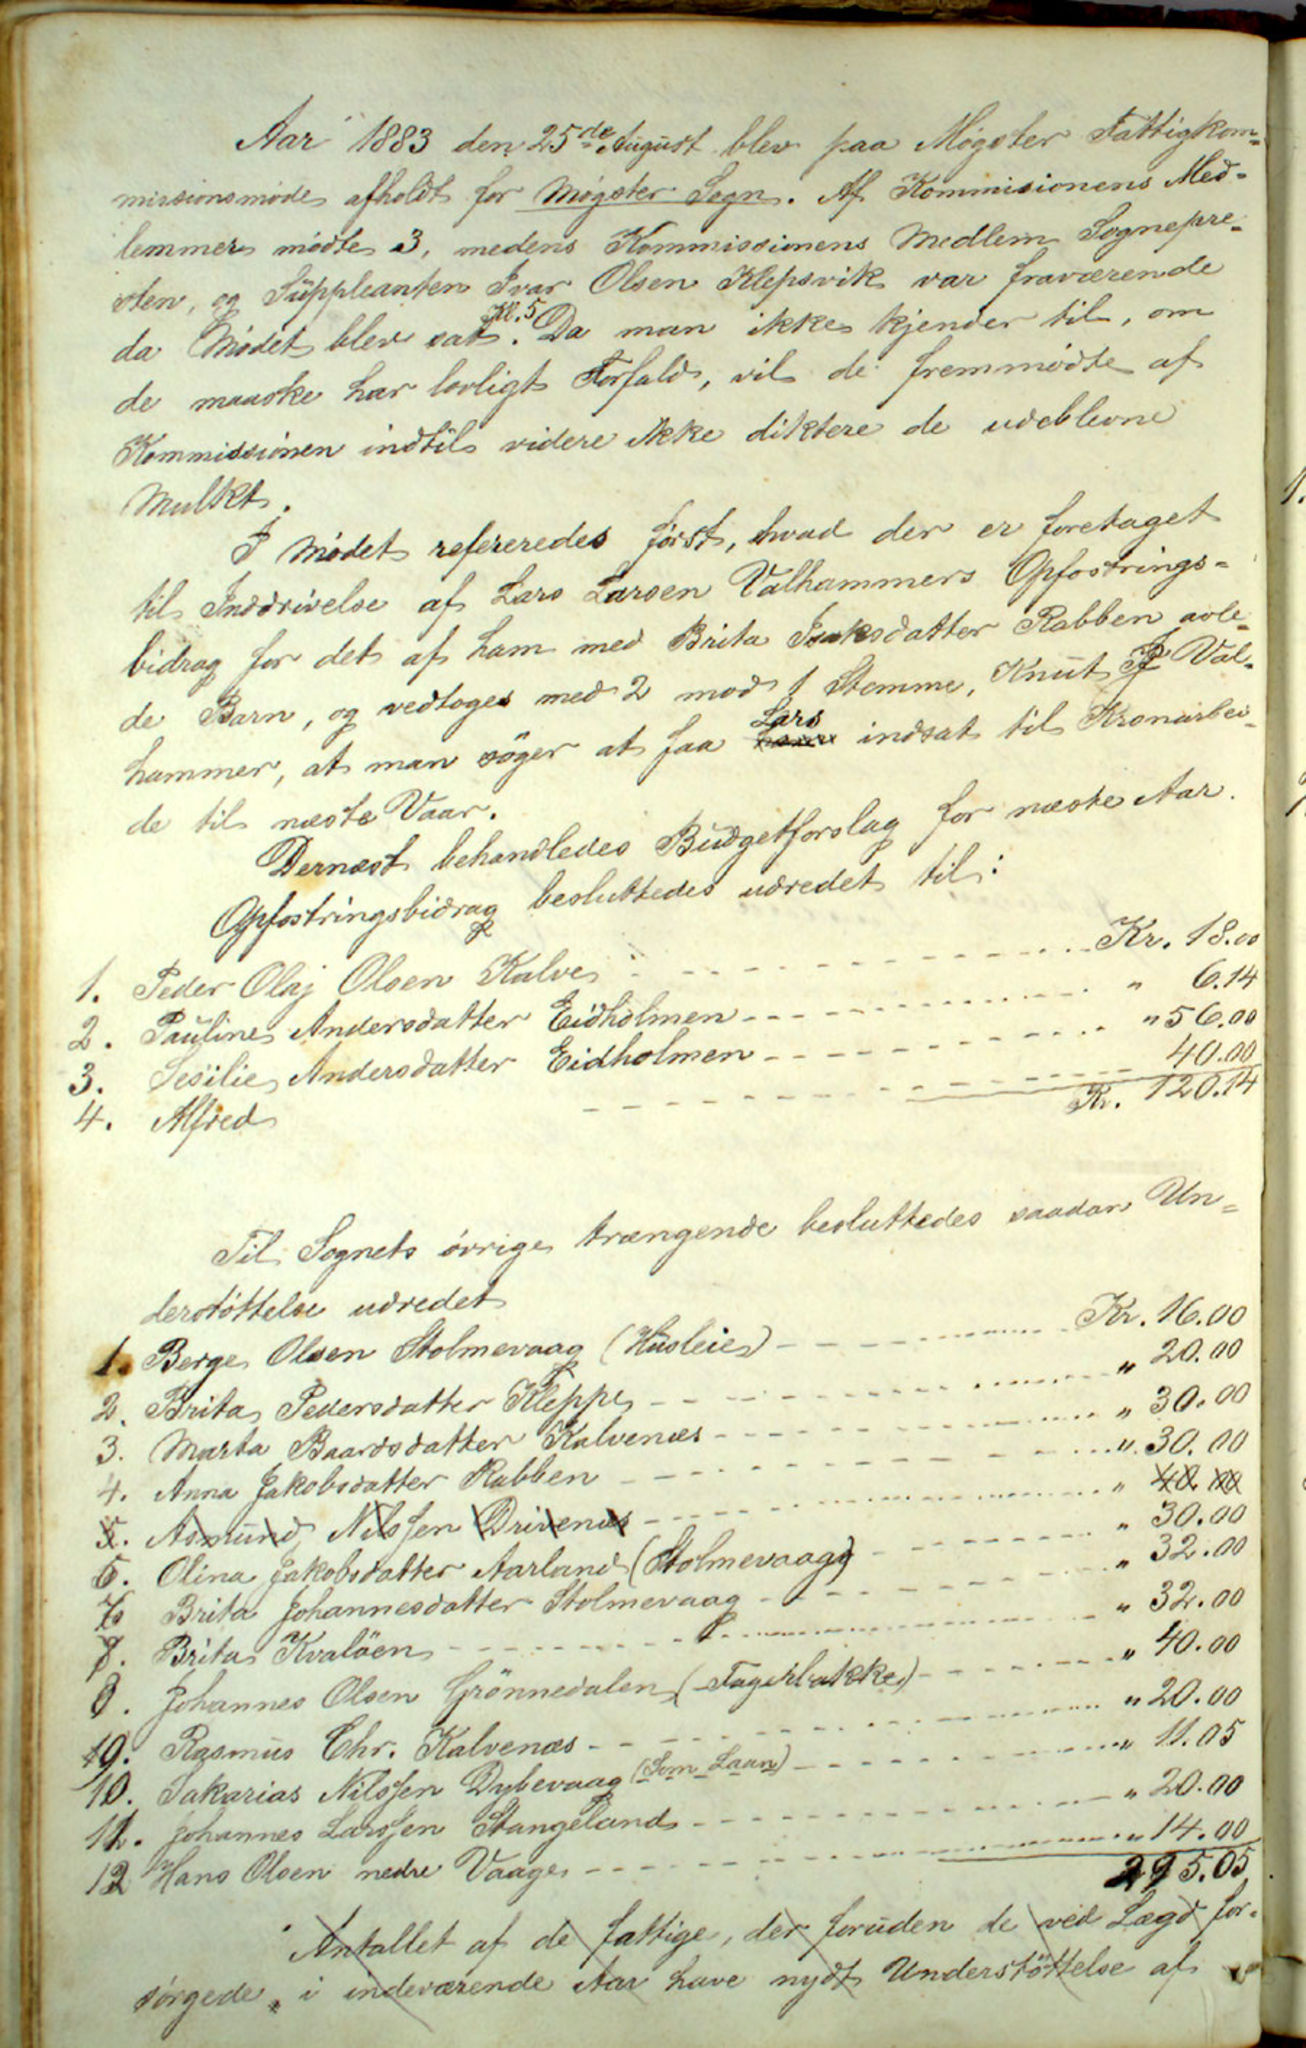 Aar 1883 den 25de August blev paa Møgster Fattigkom-
missionsmøde afholdt for Møgster Sogn. Af Kommisionens Med-
lemmer mødte 3, medens Kommissionens Medlem Sognepre-
sten, og Suppleanten Ivar Olsen Klepsvik var fraværende
da Mødet blev sat Kl. 5. Da man ikke kjender til, om
de maaske har lovligt Forfald, vil de fremmødte af
Kommissionen indtil videre ikke diktere de udeblevne
Mulkt.
I Mødet refereredes først, hvad der er foretaget
til Inddrivelse af Lars Larsen Valhammers Opfostrings-
bidrag for det af ham med Brita Isaksdatter Rabben avle-
de Barn, og vedtoges med 2 mod 1 Stemme, Knut Val-
hammer, at man søger at faa Lars indsat til Kronarbei-
de til næste Vaar.
Dernæst behandledes Budgetforslag for næste Aar.
Opfostringsbidrag besluttedes udredet til:
1. Peder Olaj Olsen Kalve Kr. 18.00
2. Pauline Andersdatter Eidholmen " 6.14
3. Sesilie Andersdatter Eidholmen " 56.00
4. Alfred 40.00
Kr. 120.14
Til Sognets øvrige trængende besluttedes saadan Un-
derstøttelse udredet
1. Berge Olsen Stolmevaag (Husleie) Kr. 16.00
2. Brita Pedersdatter Kleppe " 20.00
3. Marta Baardsdatter Kalvenæs " 30.00
4. Anna Jakobsdatter Rabben " 30.00
5. Asmund Nilssen Drivenes " 40.00
5. Olina Jakobsdatter Aarland (Stolmevaag) " 30.00
6 Brita Johannesdatter Stolmevaag " 32.00
7. Brita Kvaløen " 32.00
8. Johannes Olsen Grønnedalen (Fagerbakke) " 40.00
9. Rasmus Chr. Kalvenæs " 20.00
10. Sakarias Nilssen Dybevaag (Som Laan) " 11.05
11. Johannes Larssen Stangeland " 20.00
12 Hans Olsen nedre Vaage " 14.00
295.05
Antallet af de fattige, der foruden de ved Lægd for-
sørgede, i indeværende Aar have nydt Understøttelse af